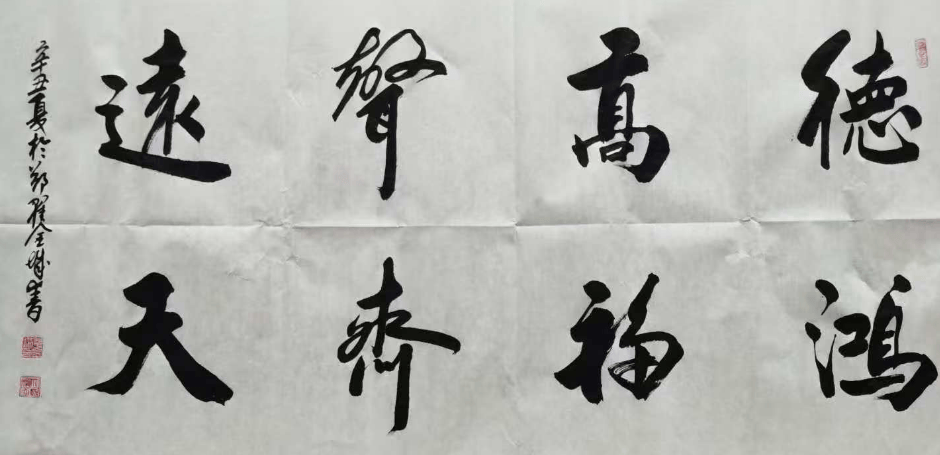 德高聲遠
鴻福齊天
辛丑夏於鄭翟全城書